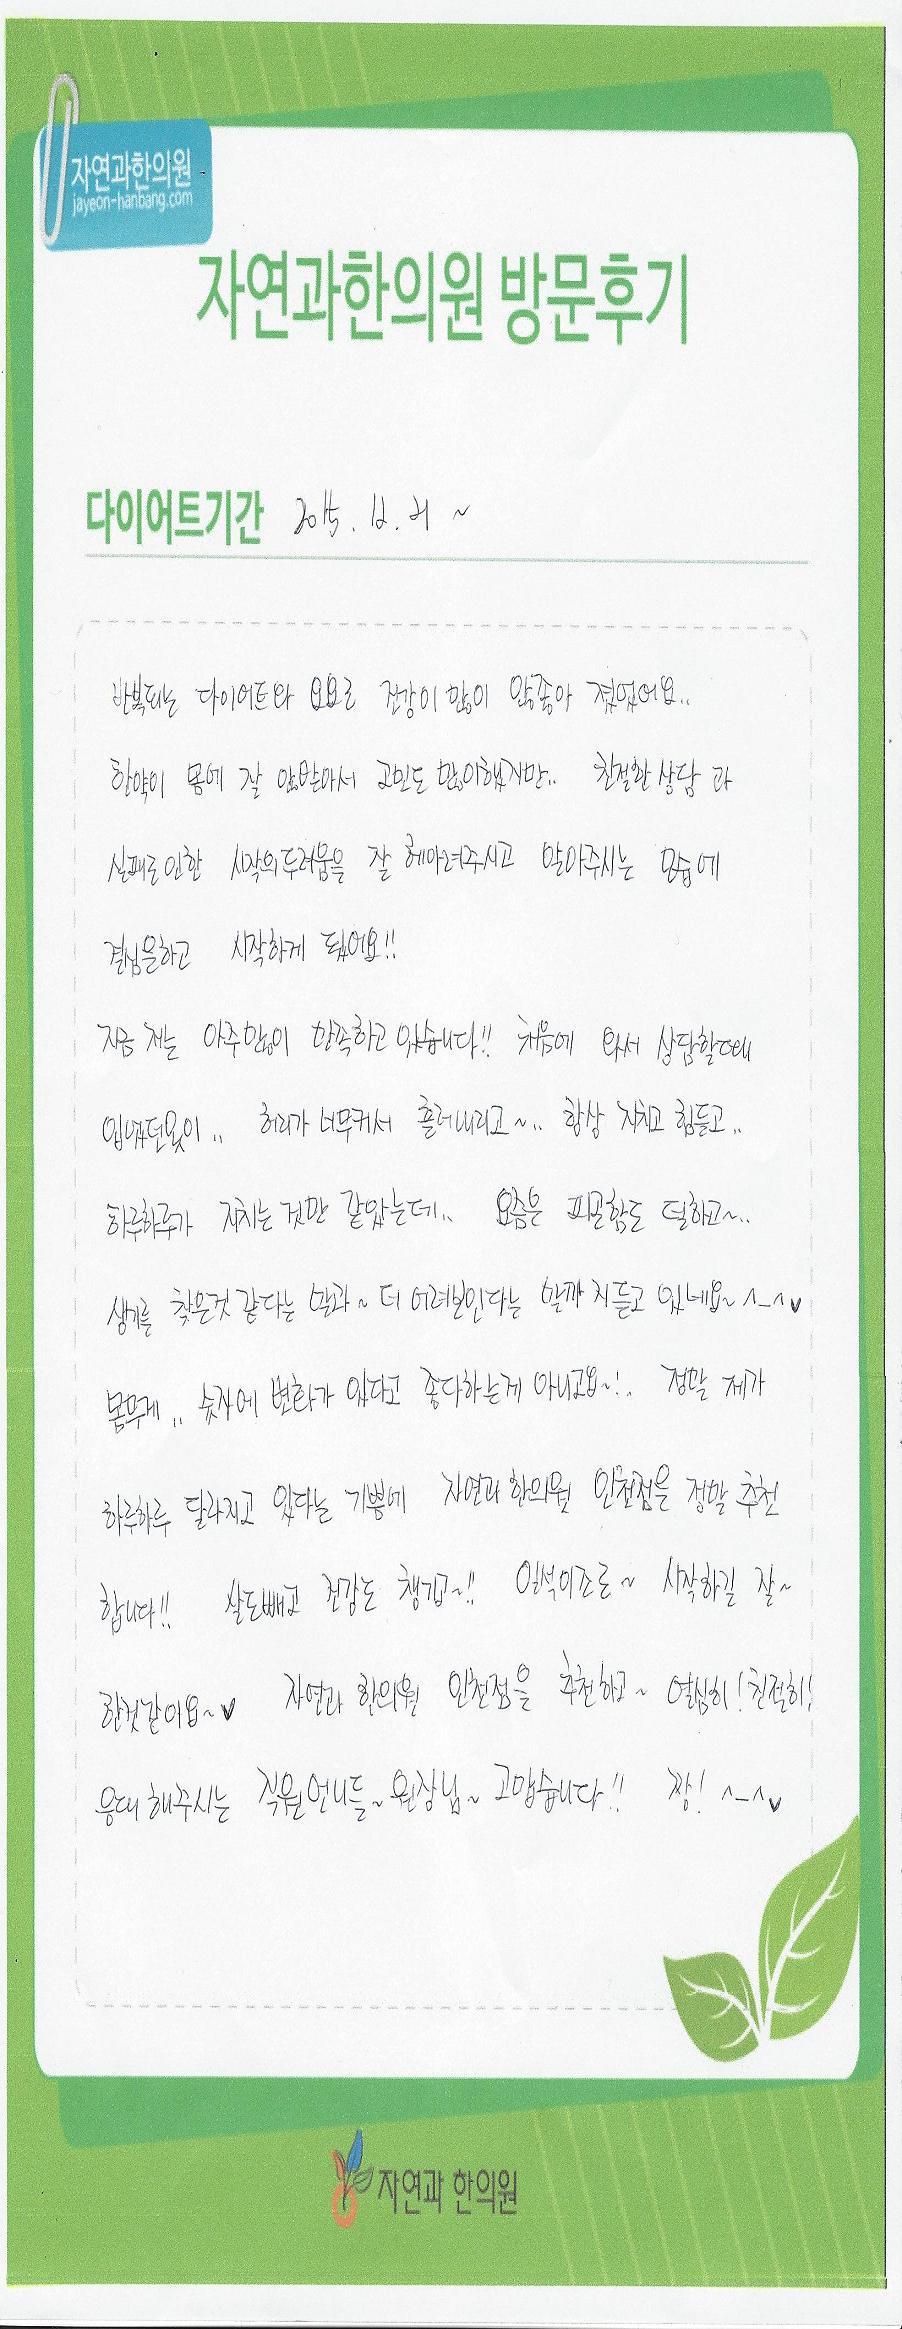 자연과한의원
jayeon-hanbang.com
자연과한의원 방문후기
다이어트기간 2015. 12. 21 ~
반복되는 다이어트와 요요로 건강이 많이 안좋아 졌었어요..
한약이 몸에 잘 안받아서 고민도 많이했지만.. 친절한 상담 과
실패로인한 시작의두려움을 잘 헤아려주시고 알아주시는 모습에
결심을하고 시작하게 됐어요!!
지금 저는 아주많이 만족하고 있습니다!! 처음에 와서 상담할때
입었던옷이.. 허리가 너무커서 흘러내리고~.. 항상 지치고 힘들고..
하루하루가 지치는 것만 같았는데.. 요즘은 피곤함도 덜하고~..
생기를 찾은것 같다는 말과~ 더 어려보인다는 말까지 듣고 있네요~ ^-^♥
몸무게.. 숫자에 변화가 있다고 좋다하는게 아니고요~!. 정말 제가
하루하루 달라지고 있다는 기쁨에 자연과 한의원 인천점을 정말 추천
합니다!! 살도빼고 건강도 챙기고~!! 일석이조로~ 시작하길 잘~
한것같아요~♥ 자연과 한의원 인천점을 추천하고~ 열심히! 친절히!
응대 해주시는 직원언니들~ 원장님~ 고맙습니다!! 짱! ^-^♥
자연과 한의원